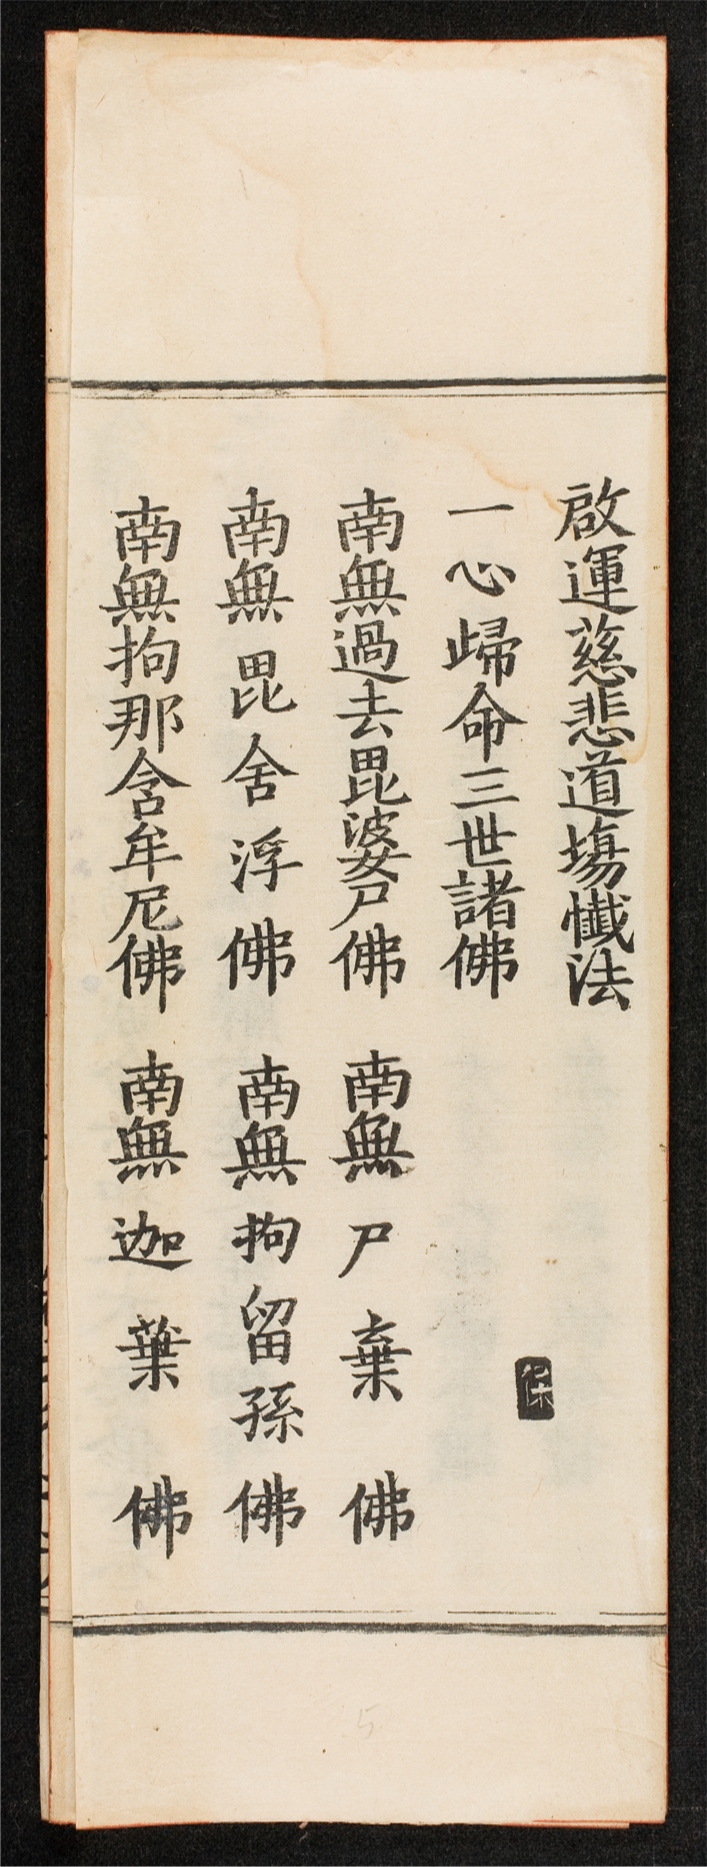 啟運慈悲道塲懺法
一心歸命三世諸佛
南無過去毘婆尸佛 南無尸棄佛
南無毘舍浮佛 南無拘留孫佛
南無拘那含牟尼佛 南無迦葉佛
5